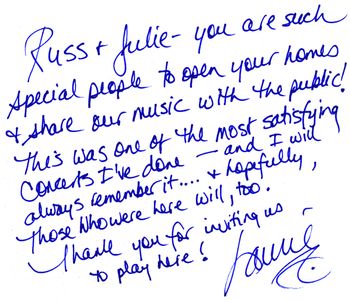 Russ + Julie - you are such
special people to open your homes
+ share our music with the public!
This was one of the most satisfying
concerts I've done — and I will
always remember it.... + hopefully,
those who were here will, too.
Thank you for inviting us
to play here!